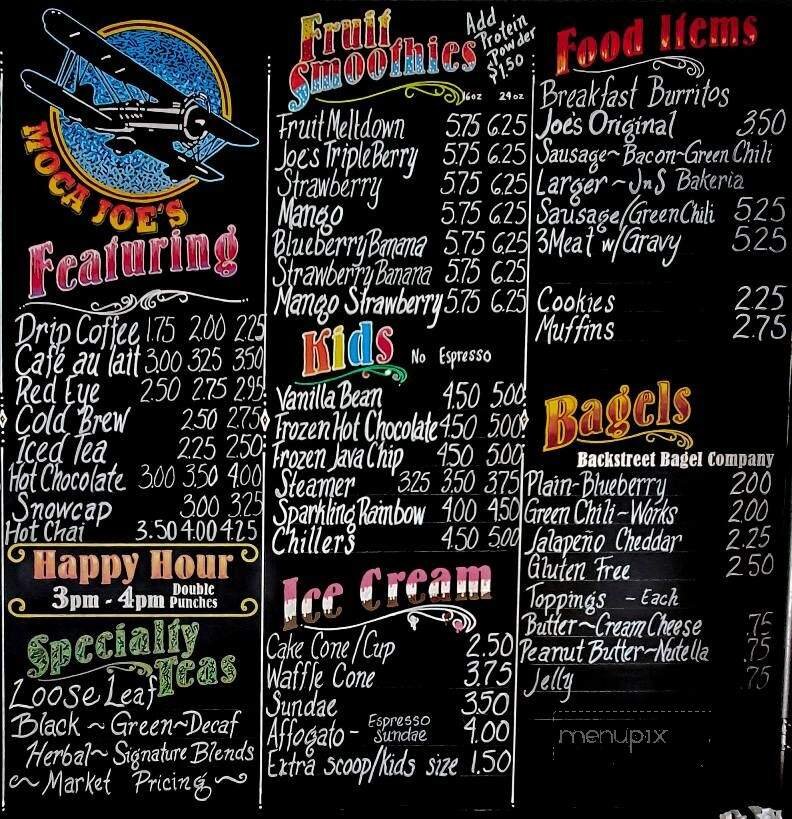 MOCA JOE'S
Featuring
Drip Coffee 1.75 2.00 2.25
Café au lait 3.00 3.25 3.50
Red Eye 2.50 2.75 2.95
Cold Brew 2.50 2.75
Iced Tea 2.25 2.50
Hot Chocolate 3.00 3.50 4.00
Snowcap 3.00 3.25
Hot Chai 3.50 4.00 4.25
Happy Hour
3pm - 4pm Double Punches
Specialty
Teas
Loose Leaf
Black ~ Green ~ Decaf
Herbal ~ Signature Blends
~ Market Pricing ~
Fruit
Smoothies
Add
Protein
Powder
$1.50
16oz 24oz
Fruit Meltdown 5.75 6.25
Joe's Triple Berry 5.75 6.25
Strawberry 5.75 6.25
Mango 5.75 6.25
Blueberry Banana 5.75 6.25
Strawberry Banana 5.75 6.25
Mango Strawberry 5.75 6.25
Kids No Espresso
Vanilla Bean 4.50 5.00
Frozen Hot Chocolate 4.50 5.00
Frozen Java Chip 4.50 5.00
Steamer 3.25 3.50 3.75
Sparkling Rainbow 4.00 4.50
Chillers 4.50 5.00
Ice Cream
Cake Cone/Cup 2.50
Waffle Cone 3.75
Sundae 3.50
Affogato - Espresso Sundae 4.00
Extra scoop/Kids size 1.50
Food Items
Breakfast Burritos
Joe's Original 3.50
Sausage ~ Bacon ~ Green Chili
Larger ~ JnS Bakeria
Sausage/Green Chili 5.25
3 Meat w/Gravy 5.25
Cookies 2.25
Muffins 2.75
Bagels
Backstreet Bagel Company
Plain - Blueberry 2.00
Green Chili - Works 2.00
Jalapeño Cheddar 2.25
Gluten Free 2.50
Toppings - Each
Butter ~ Cream Cheese .75
Peanut Butter ~ Nutella .75
Jelly .75
menupix